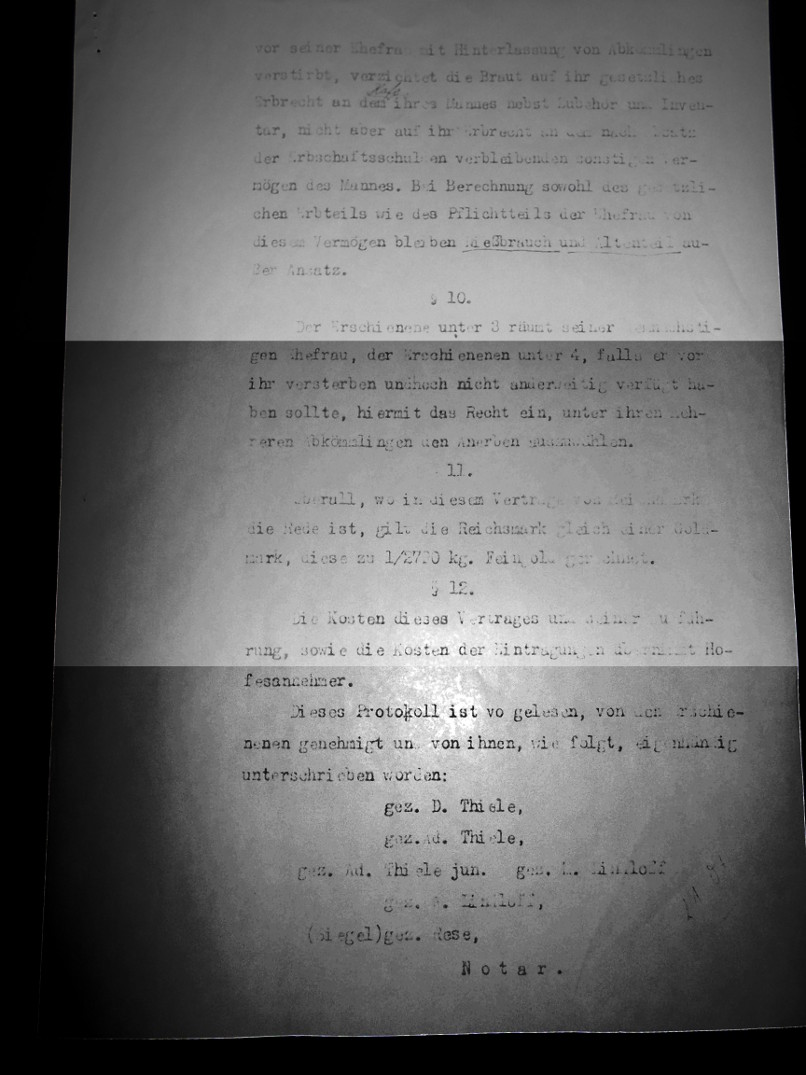 vor seiner Ehefrau mit Hinterlassung von Abkömmlingen
verstirbt, verzichtet die Braut auf ihr gesetzliches
Erbrecht an dem Hofe ihres Mannes nebst Zubehör und Inven-
tar, nicht aber auf ihr Erbrecht an dem nach
der Erbschaftsschulden verbleibenden sonstigen Ver-
mögen des Mannes. Bei Berechnung sowohl des gesetzli-
chen Erbteils wie des Pflichtteils der Ehefrau von
diesem Vermögen bleiben Nießbrauch und Altenteil au-
ßer Ansatz.
§ 10.
Der Erschienene unter 3 räumt seiner
gen Ehefrau, der Erschienenen unter 4, falls er vor
ihr versterben und noch nicht anderweitig verfügt ha-
ben sollte, hiermit das Recht ein, unter ihren meh-
reren Abkömmlingen den Anerben auszuwählen.
11.
Überall, wo in diesem Vertrage von Reichsmark
die Rede ist, gilt die Reichsmark gleich einer Gold-
mark, diese zu 1/2790 kg. Feingold gerechnet.
§ 12.
Die Kosten dieses Vertrages und seiner Ausfüh-
rung, sowie die Kosten der Eintragungen übernimmt Ho-
fesannehmer.
Dieses Protokoll ist vorgelesen, von den Erschie-
nenen genehmigt und von ihnen, wie folgt, eigenhändig
unterschrieben worden:
gez. D. Thiele,
gez. Ad. Thiele,
gez. Ad. Thiele jun. gez.
gez.
(Siegel) gez. Rese,
Notar.